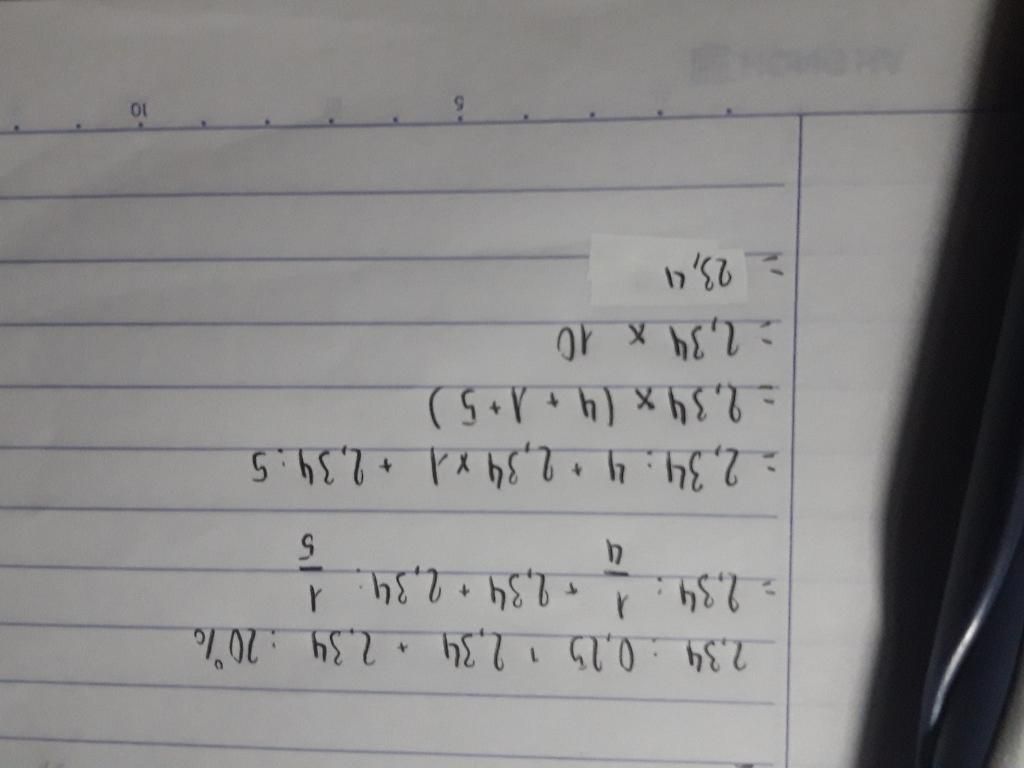 2,34 : 0,25 + 2,34 + 2,34 : 20%
= 2,34 : 1/4 + 2,34 + 2,34 : 1/5
= 2,34 : 4 + 2,34 x 1 + 2,34 : 5
= 2,34 x (4 + 1 + 5)
= 2,34 x 10
= 23,4
5 10